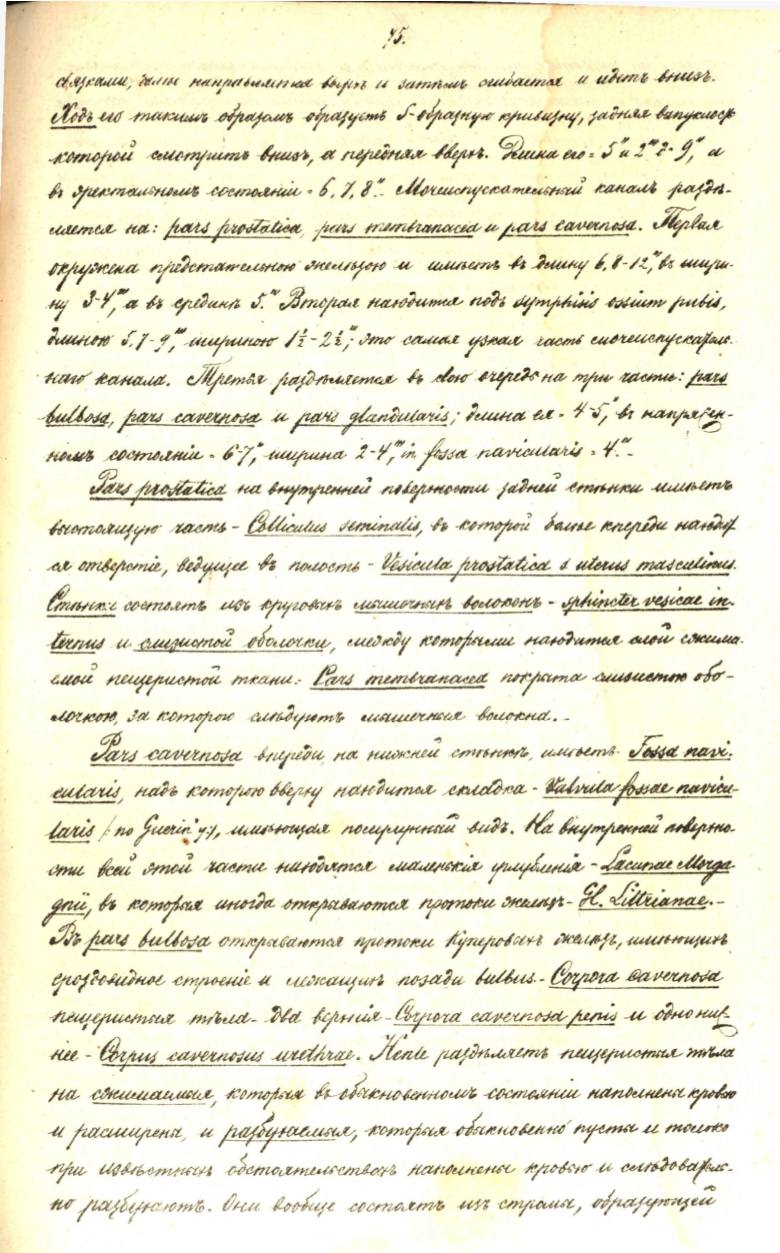 75.
связками, далѣе направляется вверхъ и затѣмъ сгибается и идетъ внизъ.
Ходъ его такимъ образомъ образуетъ S-образную кривизну, задняя выпуклость
которой смотритъ внизъ, а передняя вверхъ. Длина его = 5" и 2'" - 9", а
въ эректальномъ состояніи = 6, 7, 8". Мочеиспускательный каналъ раздѣ-
ляется на: pars prostatica, pars membranacea и pars cavernosa. Первая
окружена предстательною железою и имѣетъ въ длину 6, 8-12'", въ шири-
ну 3-4'", а въ срединѣ 5'". Вторая находится подъ symphisis ossium pubis,
длиною 5, 7-9'", шириною 1½-2½'"; это самая узкая часть мочеиспускатель-
наго канала. Третья раздѣляется въ свою очередь на три части: pars
bulbosa, pars cavernosa и pars glandularis; длина ея = 4-5", въ напряжен-
номъ состояніи = 6-7", ширина 2-4'", in fossa navicularis = 4'".
Pars prostatica на внутренней поверхности задней стѣнки имѣетъ
выстоящую часть - Colliculus seminalis, въ которой болѣе кпереди находит
ся отверстіе, ведущее въ полость - Vesicula prostatica s uterus masculinus.
Стѣнки состоятъ изъ круговыхъ мышечныхъ волоконъ - sphincter vesicae in-
ternus и слизистой оболочки, между которыми находится слой сжима-
емой пещеристой ткани. Pars membranacea покрыта слизистою обо-
лочкою, за которою слѣдуютъ мышечныя волокна.
Pars cavernosa впереди, на нижней стѣнкѣ, имѣетъ Fossa navi-
cularis, надъ которою вверху находится складка - Valvula fossae navicu-
laris /: по Guerin'у:/, имѣющая полулунный видъ. На внутренней поверхно-
сти всей этой части находятся маленькія углубленія - Lacunae Morga-
gnii, въ которыя иногда открываются протоки железъ - Gl. Littrianae.
Въ pars bulbosa открываются протоки Куперовыхъ железъ, имѣющихъ
гроздовидное строеніе и лежащихъ позади bulbus. Corpora cavernosa
пещеристыя тѣла - два верхнія - Corpora cavernosa penis и одно ниж-
нее - Corpus cavernosus urethrae. Henle раздѣляетъ пещеристыя тѣла
на сжимаемыя, которыя въ обыкновенномъ состояніи наполнены кровью
и расширены, и разбухаемыя, которыя обыкновенно пусты и только
при извѣстныхъ обстоятельствахъ наполнены кровью и слѣдователь-
но разбухаютъ. Они вообще состоятъ изъ стромы, образующей